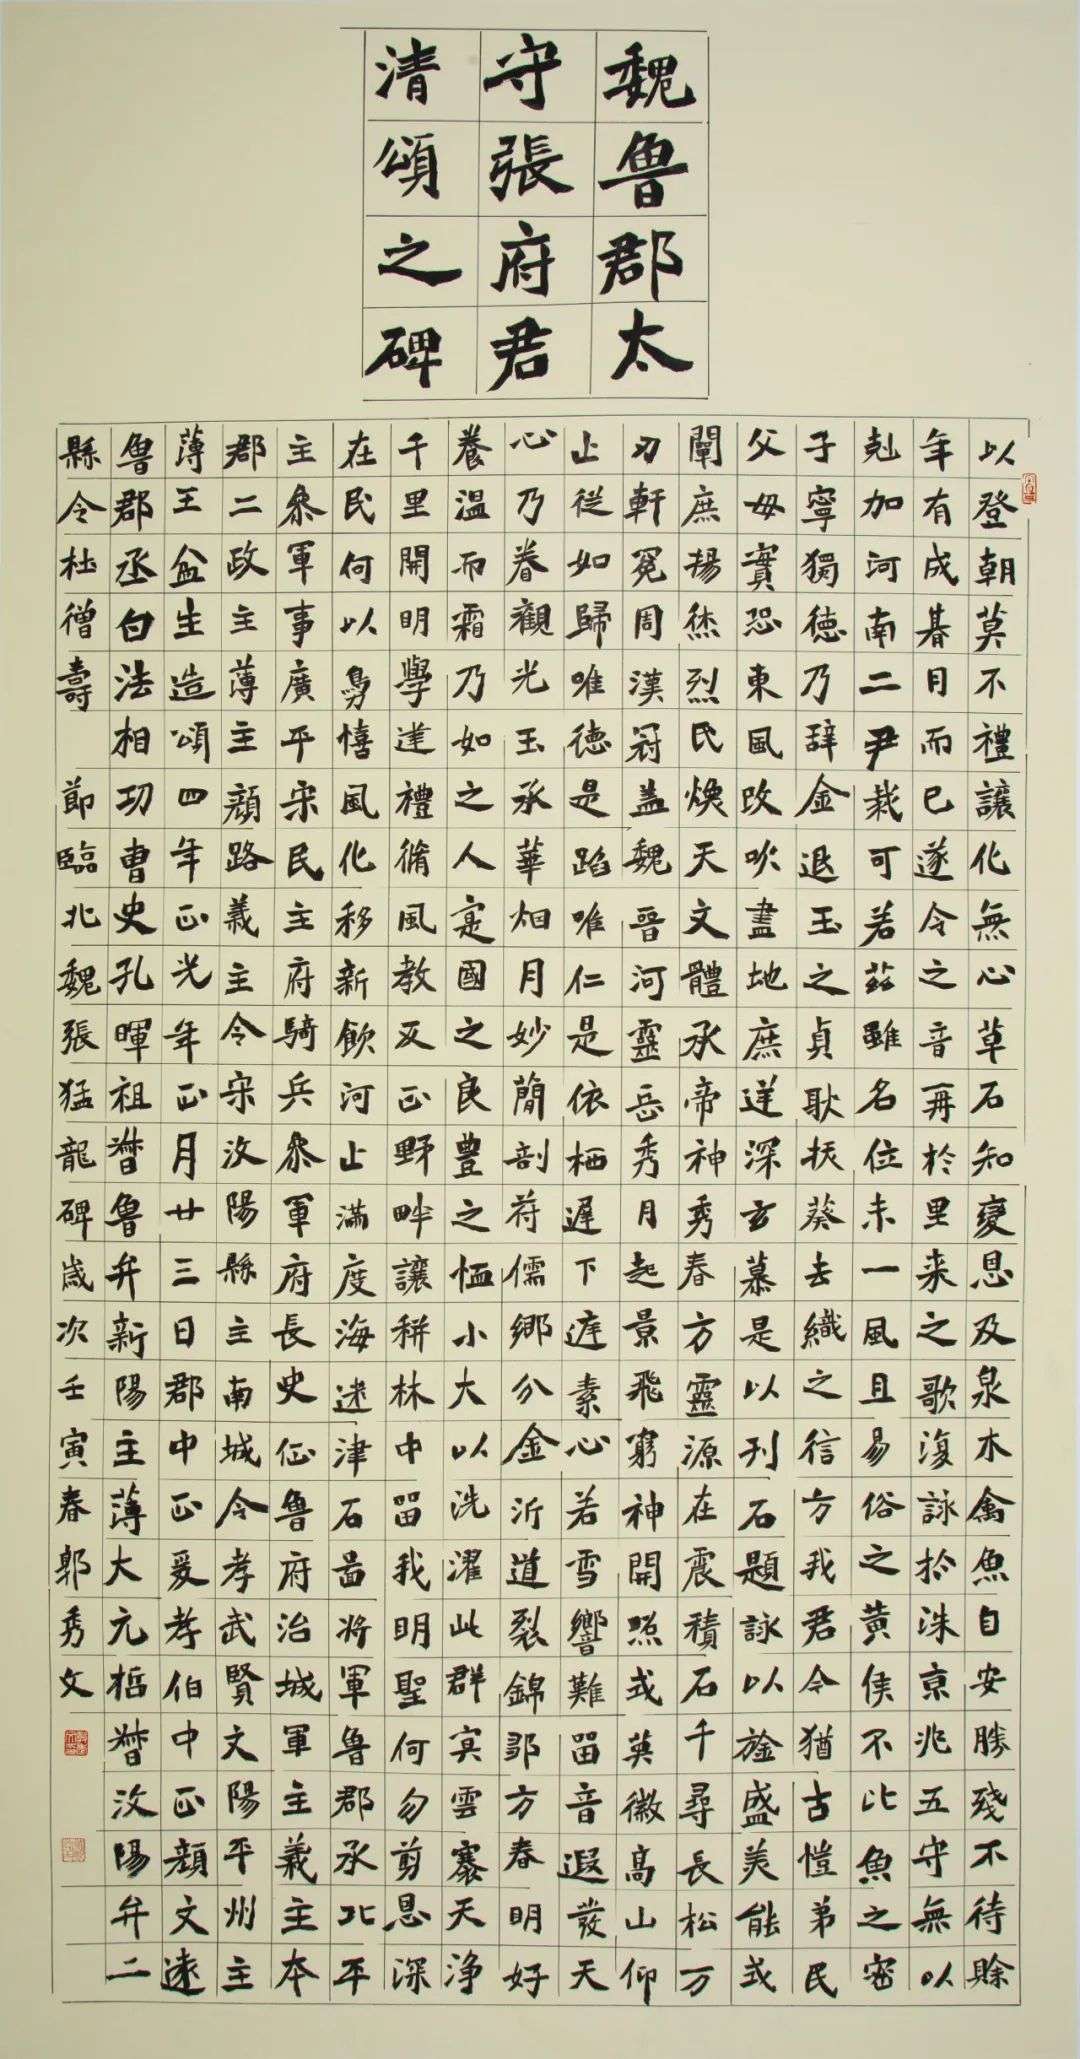 魏魯郡太
守張府君
清頌之碑
以登朝莫不禮讓化無心草石知變恩及泉木禽魚自安勝殘不待賒
年有成朞月而已遂令之音再於里来之歌復詠於洙京兆五守無以
剋加河南二尹裁可若茲雖名位未一風且易俗之黄侯不比魚之密
子寧獨德乃辭金退玉之貞耿拔葵去織之信方我君令猶古愷弟民
父毋實恐東風改吹盡地庶逆深玄慕是以刊石題詠以旌盛美能或
闡庶揚烋烈民煥天文體承帝神秀春方靈源在震積石千尋長松万
刃軒冕周漢冠盖魏晉河靈岳秀月起景飛窮神開照或英徽高山仰
止從如歸唯德是蹈唯仁是依栖遲下庭素心若雪響難留音遐發天
心乃眷觀光玉承華烟月妙簡剖苻儒鄉分金沂道裂錦鄒方春明好
養温而霜乃如之人寔國之良豊之恤小大以洗濯此群冥雲褰天净
千里開明學達禮脩風教反正野畔讓耕林中留我明聖何勿剪恩深
在民何以勗憘風化移新飲河止滿度海迷津石啚将軍魯郡承北平
主叅軍事廣平宋民主府騎兵叅軍府長史征魯府治城軍主義主本
郡二政主薄主顔路義主令宋汶陽縣主南城令孝武賢文陽平州主
薄王盆生造頌四年正光年正月廿三日郡中正爰孝伯中正顔文遠
魯郡丞白法相功曹史孔暉祖督魯弁新陽主薄大元哲督汶陽弁二
縣令杜僧壽 節臨北魏張猛龍碑歲次壬寅春郭秀文